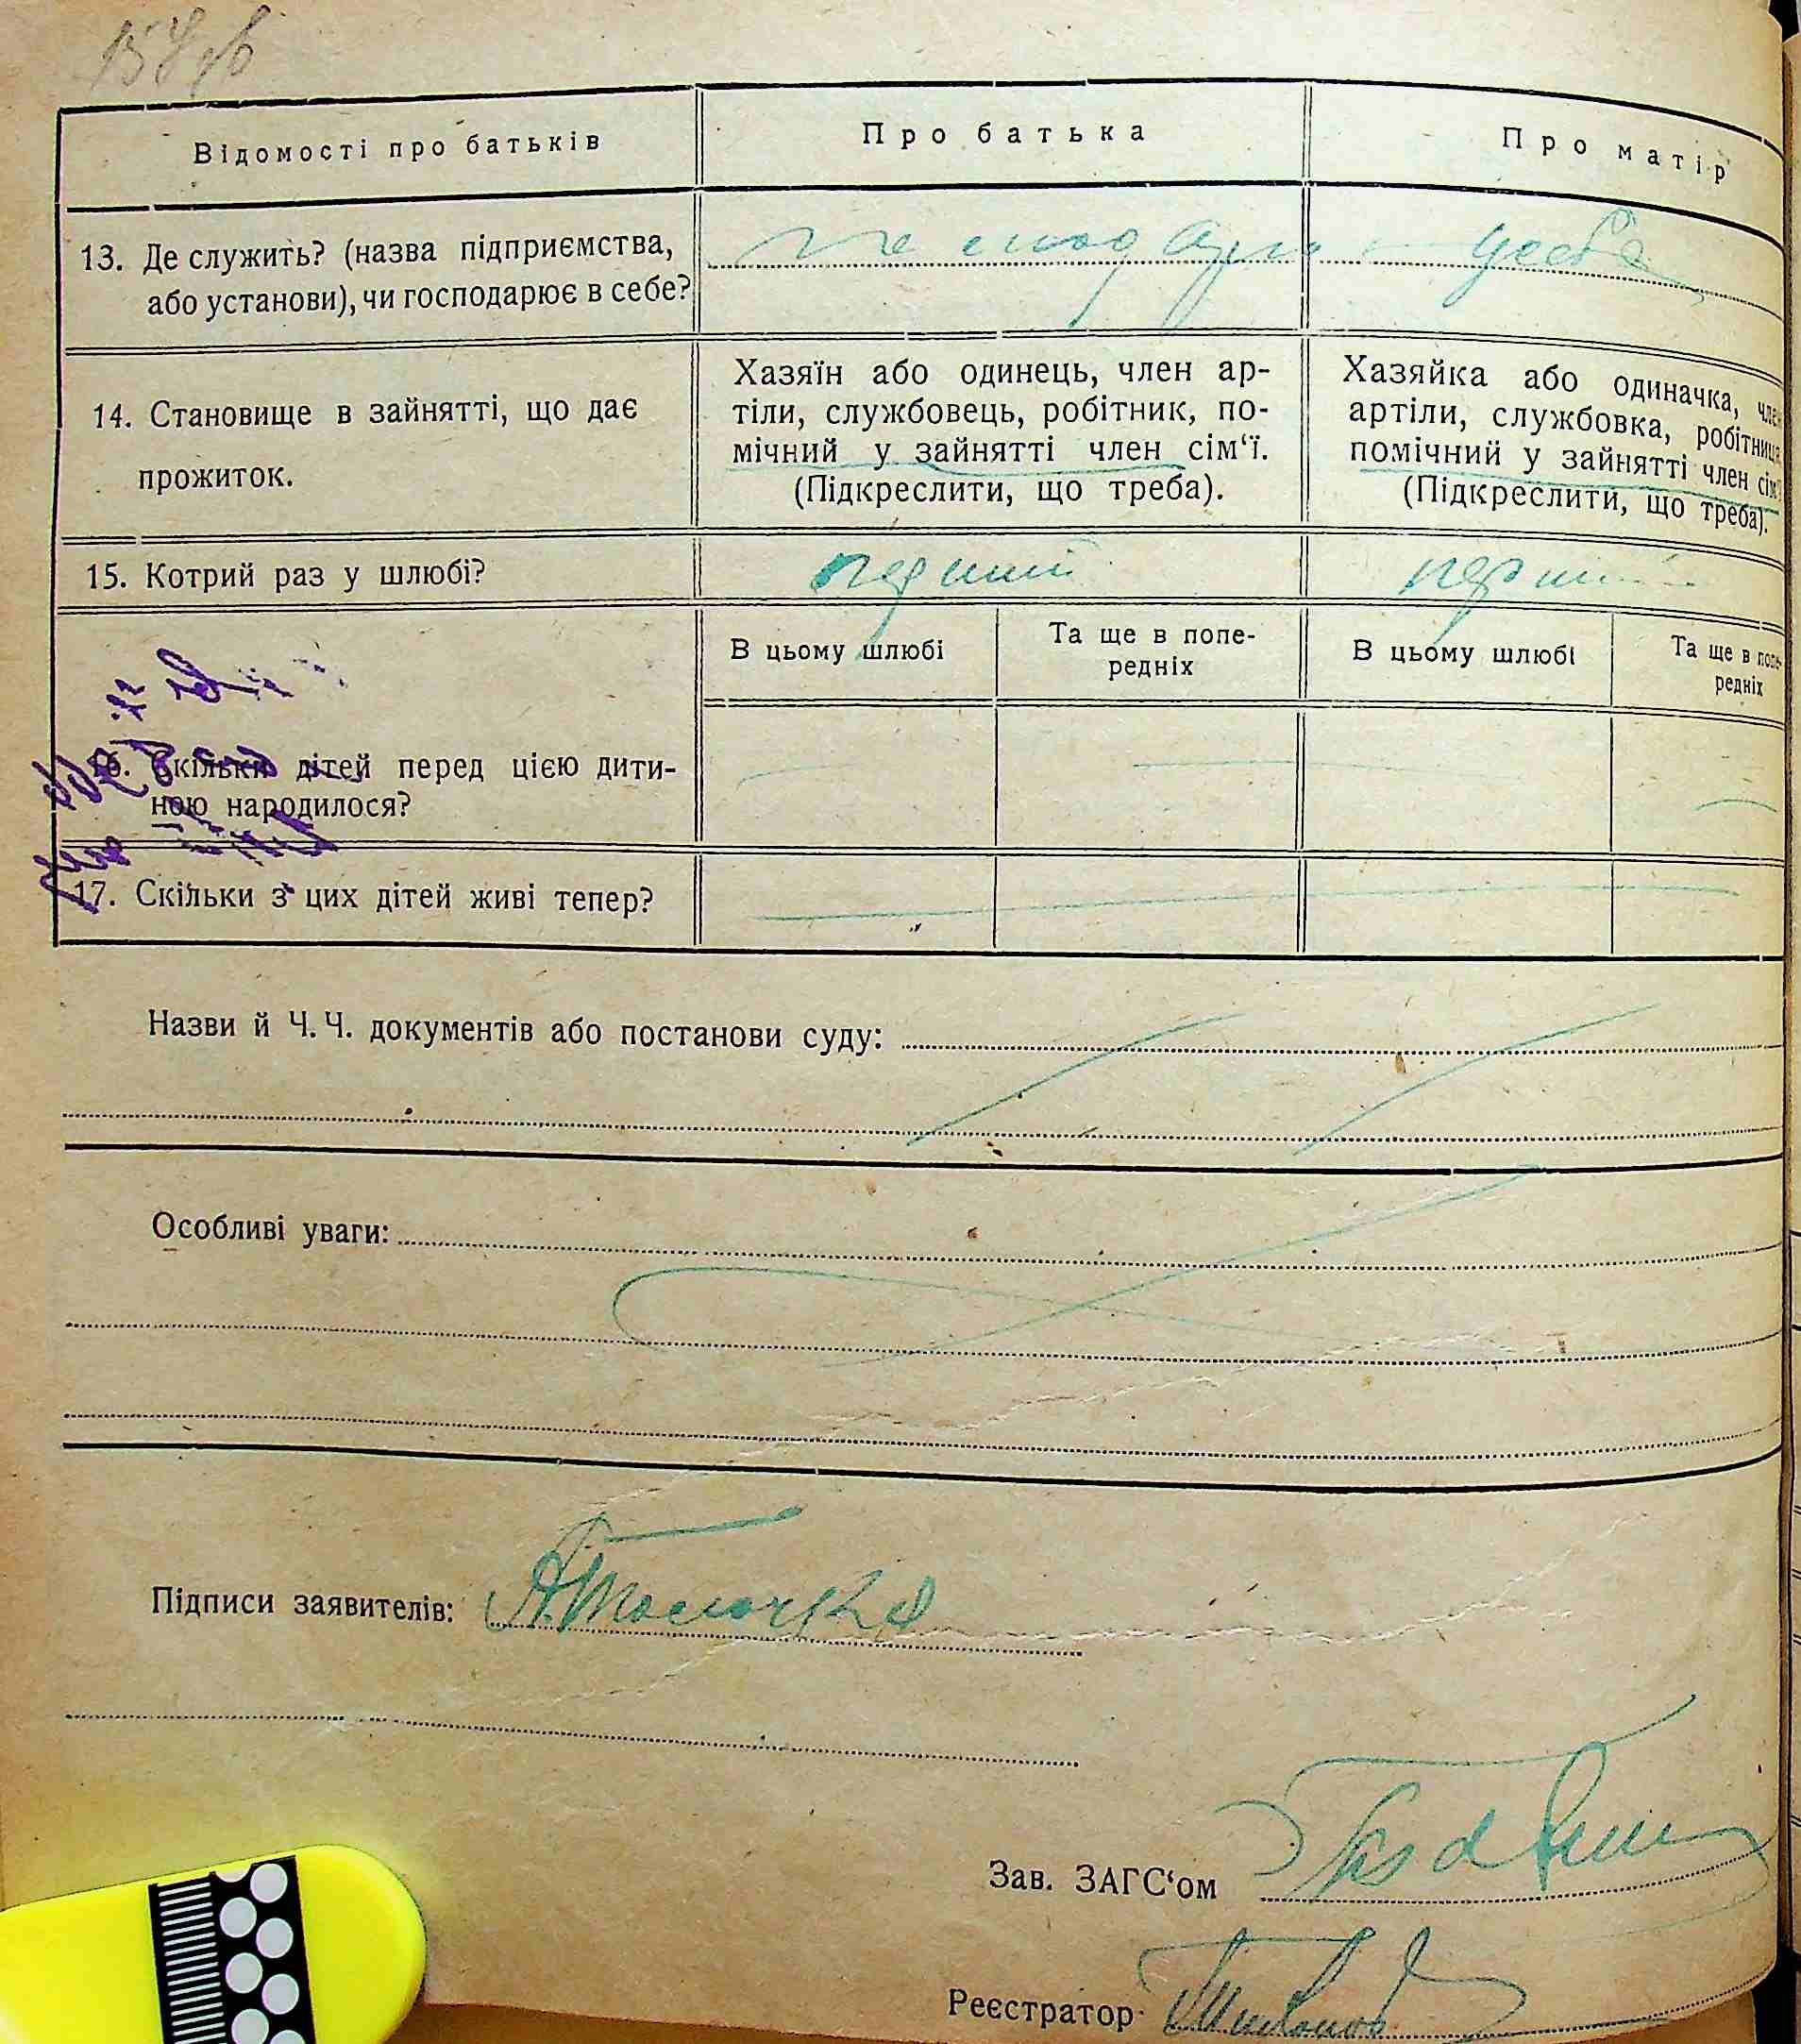 Відомості про батьків
Про батька
Про матір
13. Де служить? (назва підприємства,
або установи), чи господарює в себе?
14. Становище в зайнятті, що дає
прожиток.
Хазяїн або одинець, член ар-
тіли, службовець, робітник, по-
мічний у зайнятті член сім‘ї.
(Підкреслити, що треба).
Хазяйка або одиначка, член
артіли, службовка, робітниця,
помічний у зайнятті член сім‘ї
(Підкреслити, що треба).
15. Котрий раз у шлюбі?
перший
перший
В цьому шлюбі
Та ще в попе-
редніх
В цьому шлюбі
Та ще в попе-
редніх
16. Скільки дітей перед цією дити-
ною народилося?
17. Скільки з цих дітей живі тепер?
Назви й Ч.Ч. документів або постанови суду:
Особливі уваги:
Підписи заявителів:
Зав. ЗАГС‘ом
Реєстратор